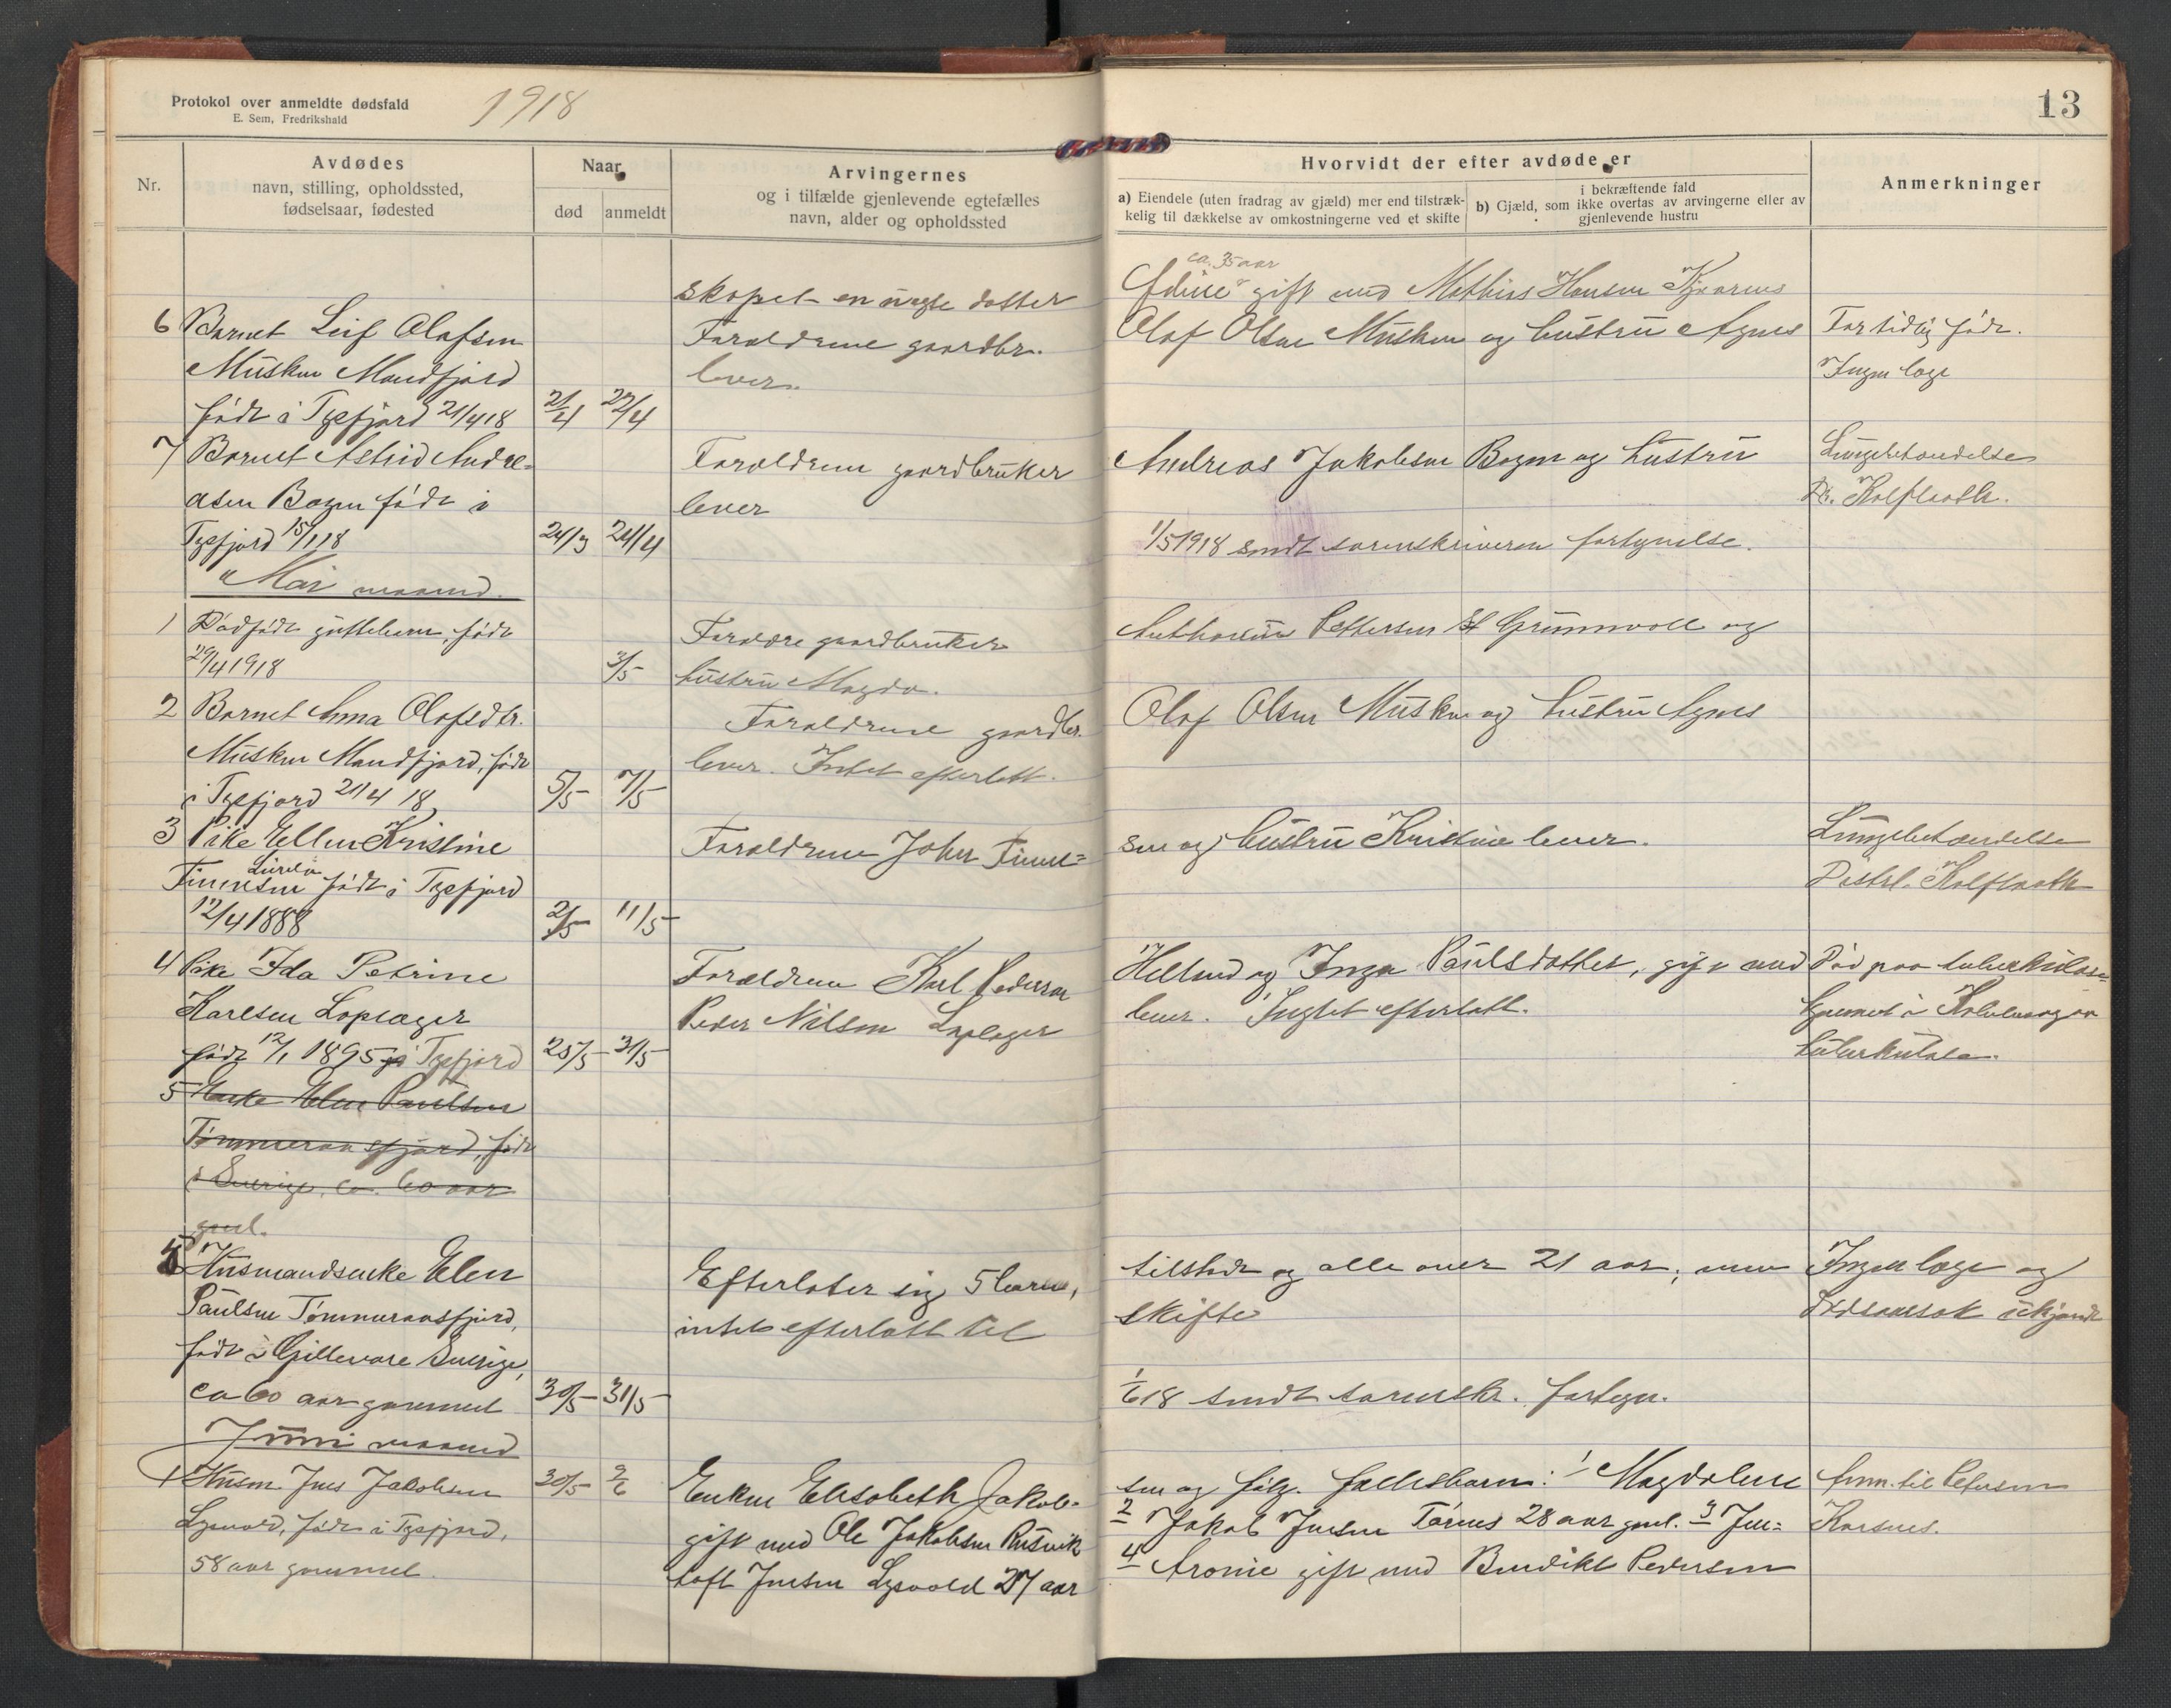 Protokol over anmeldte dødsfald
E. Sem, Fredrikshald
1918
13
Nr.
Avdødes
navn, stilling, opholdssted,
fødselsaar, fødested
Naar
død anmeldt
Arvingernes
og i tilfælde gjenlevende egtefælles
navn, alder og opholdssted
Hvorvidt der efter avdøde er
a) Eiendele (uten fradrag av gjæld) mer end tilstræk-
kelig til dækkelse av omkostningerne ved et skifte
i bekræftende fald
b) Gjæld, som ikke overtas av arvingerne eller av
gjenlevende hustru
Anmerkninger
ca. 35 aar
skapet en uegte datter gift med Mathias Hansen
6 Barnet Leif Olafsen
Forældrene gaardbr. Olaf Olsen Musken og hustru Agnes
For tidlig født.
Musken Mandfjord
lever.
Ingen læge
født i Tysfjord 21/4 18 21/4 22/4
7 Barnet Astrid Andre-
Forældrene gaardbruker Andreas Jakobsen Bogen og hustru
Lungebetændelse
asen Bogen født i
lever
Dr. Kolflaath.
Tysfjord 15/1 18 24/3 24/4
1/5 1918 sendt sorenskriveren fortegnelse.
Mai maaned.
1 Dødfødt guttebarn, født
Forældre gaardbruker Pettersen St Grunnvoll og
29/4 1918 3/5
hustru Magda.
2 Barnet Anna Olafsdtr.
Forældrene gaardbr. Olaf Olsen Musken og hustru Agnes
Musken Mandfjord, født
lever. Intet efterlatt.
i Tysfjord 21/4 18 5/5 7/5
3 Pike Ellen Kristine
Forældrene Johan Finn-
sen og hustru Kristine lever.
Lungebetændelse
Finnsen født i Tysfjord
Distrl. Kolflaath
12/4 1888 2/5 11/5
4 Pike Ida Petrine
Forældrene Karl Pedersen
Helland og Inga Paulsdatter, gift med
Død paa tuberkulose-
Karlsen Loplager
Peder Nilsen Loplager
lever. Intet efterlatt.
hjemmet i
født 12/1 1895 i Tysfjord 25/5 31/5
tuberkulose.
5 Enke Elen Paulsen
Tømmeraasfjord, født
i Sverige, ca. 60 aar
gml.
5 Husmandsenke Elen
Efterlater sig 5 barn,
tilstede og alle over 21 aar, men
Ingen læge og
Paulsen Tømmeraasfjord,
intet efterlatt til
skifte
dødsaarsak ukjendt
født i Gellevare Sverige,
ca 60 aar gammel 30/5 31/5
1/6 18 sendt sorenskr. fortegn.
Juni maaned
1 Husm. Jens Jakobsen 30/5 2/6
Enken Elisabeth Jakob-
sen og følg. fællesbarn: 1 Magdalene
Anm. til Petersen
Lysvold, født i Tysfjord,
gift med Ole Jakobsen Rusvik
2 Jakob Jensen Tårnes 28 aar gml. 3 Jen-
Korsnes.
58 aar gammel
toft Jensen Lysvold 27 aar
4 Aronie gift med Bendikt Pedersen